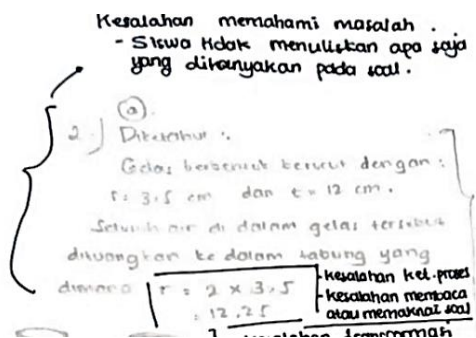 Kesalahan memahami masalah.
- Siswa tidak menuliskan apa saja
yang ditanyakan pada soal.
(a).
2.) Diketahui :
Gelas berbentuk kerucut dengan :
r = 3,5 cm dan t = 12 cm.
Seluruh air di dalam gelas tersebut
dituangkan ke dalam tabung yang
dimana r = 2 x 3,5
= 12,25
- kesalahan ket. proses
- kesalahan membaca
atau memaknai soal
kesalahan transformasi